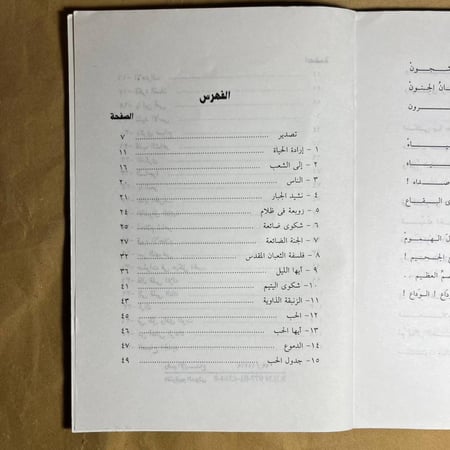 الفهرس
الصفحة
تصدير ٧
١ - إرادة الحياة ١١
٢ - إلى الشعب ١٦
٣ - الناس ٢٠
٤ - نشيد الجبار ٢١
٥ - زوبعة فى ظلام ٢٤
٦ - شكوى ضائعة ٢٥
٧ - الجنة الضائعة ٢٧
٨ - فلسفة الثعبان المقدس ٣٢
٩ - أيها الليل ٣٦
١٠- شكوى اليتيم ٤١
١١- الزنبقة الذاوية ٤٣
١٢- الحب ٤٥
١٣- أيها الحب ٤٦
١٤- الدموع ٤٧
١٥- جدول الحب ٤٩
الجنون
صداه !
البقاع
الهموم
الجحيم !
العظيم ..
الوداع ! الوداع !